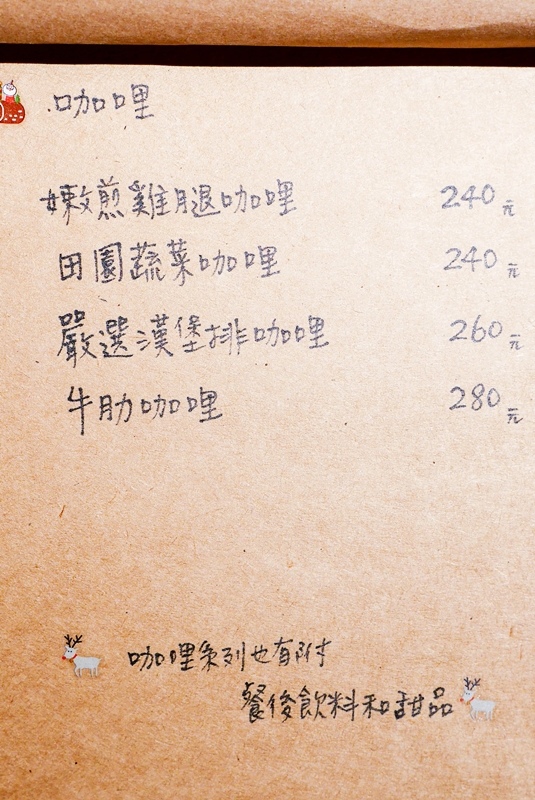 .咖哩
嫩煎雞腿咖哩 240元
田園蔬菜咖哩 240元
嚴選漢堡排咖哩 260元
牛肋咖哩 280元
咖哩系列也有附
餐後飲料和甜品